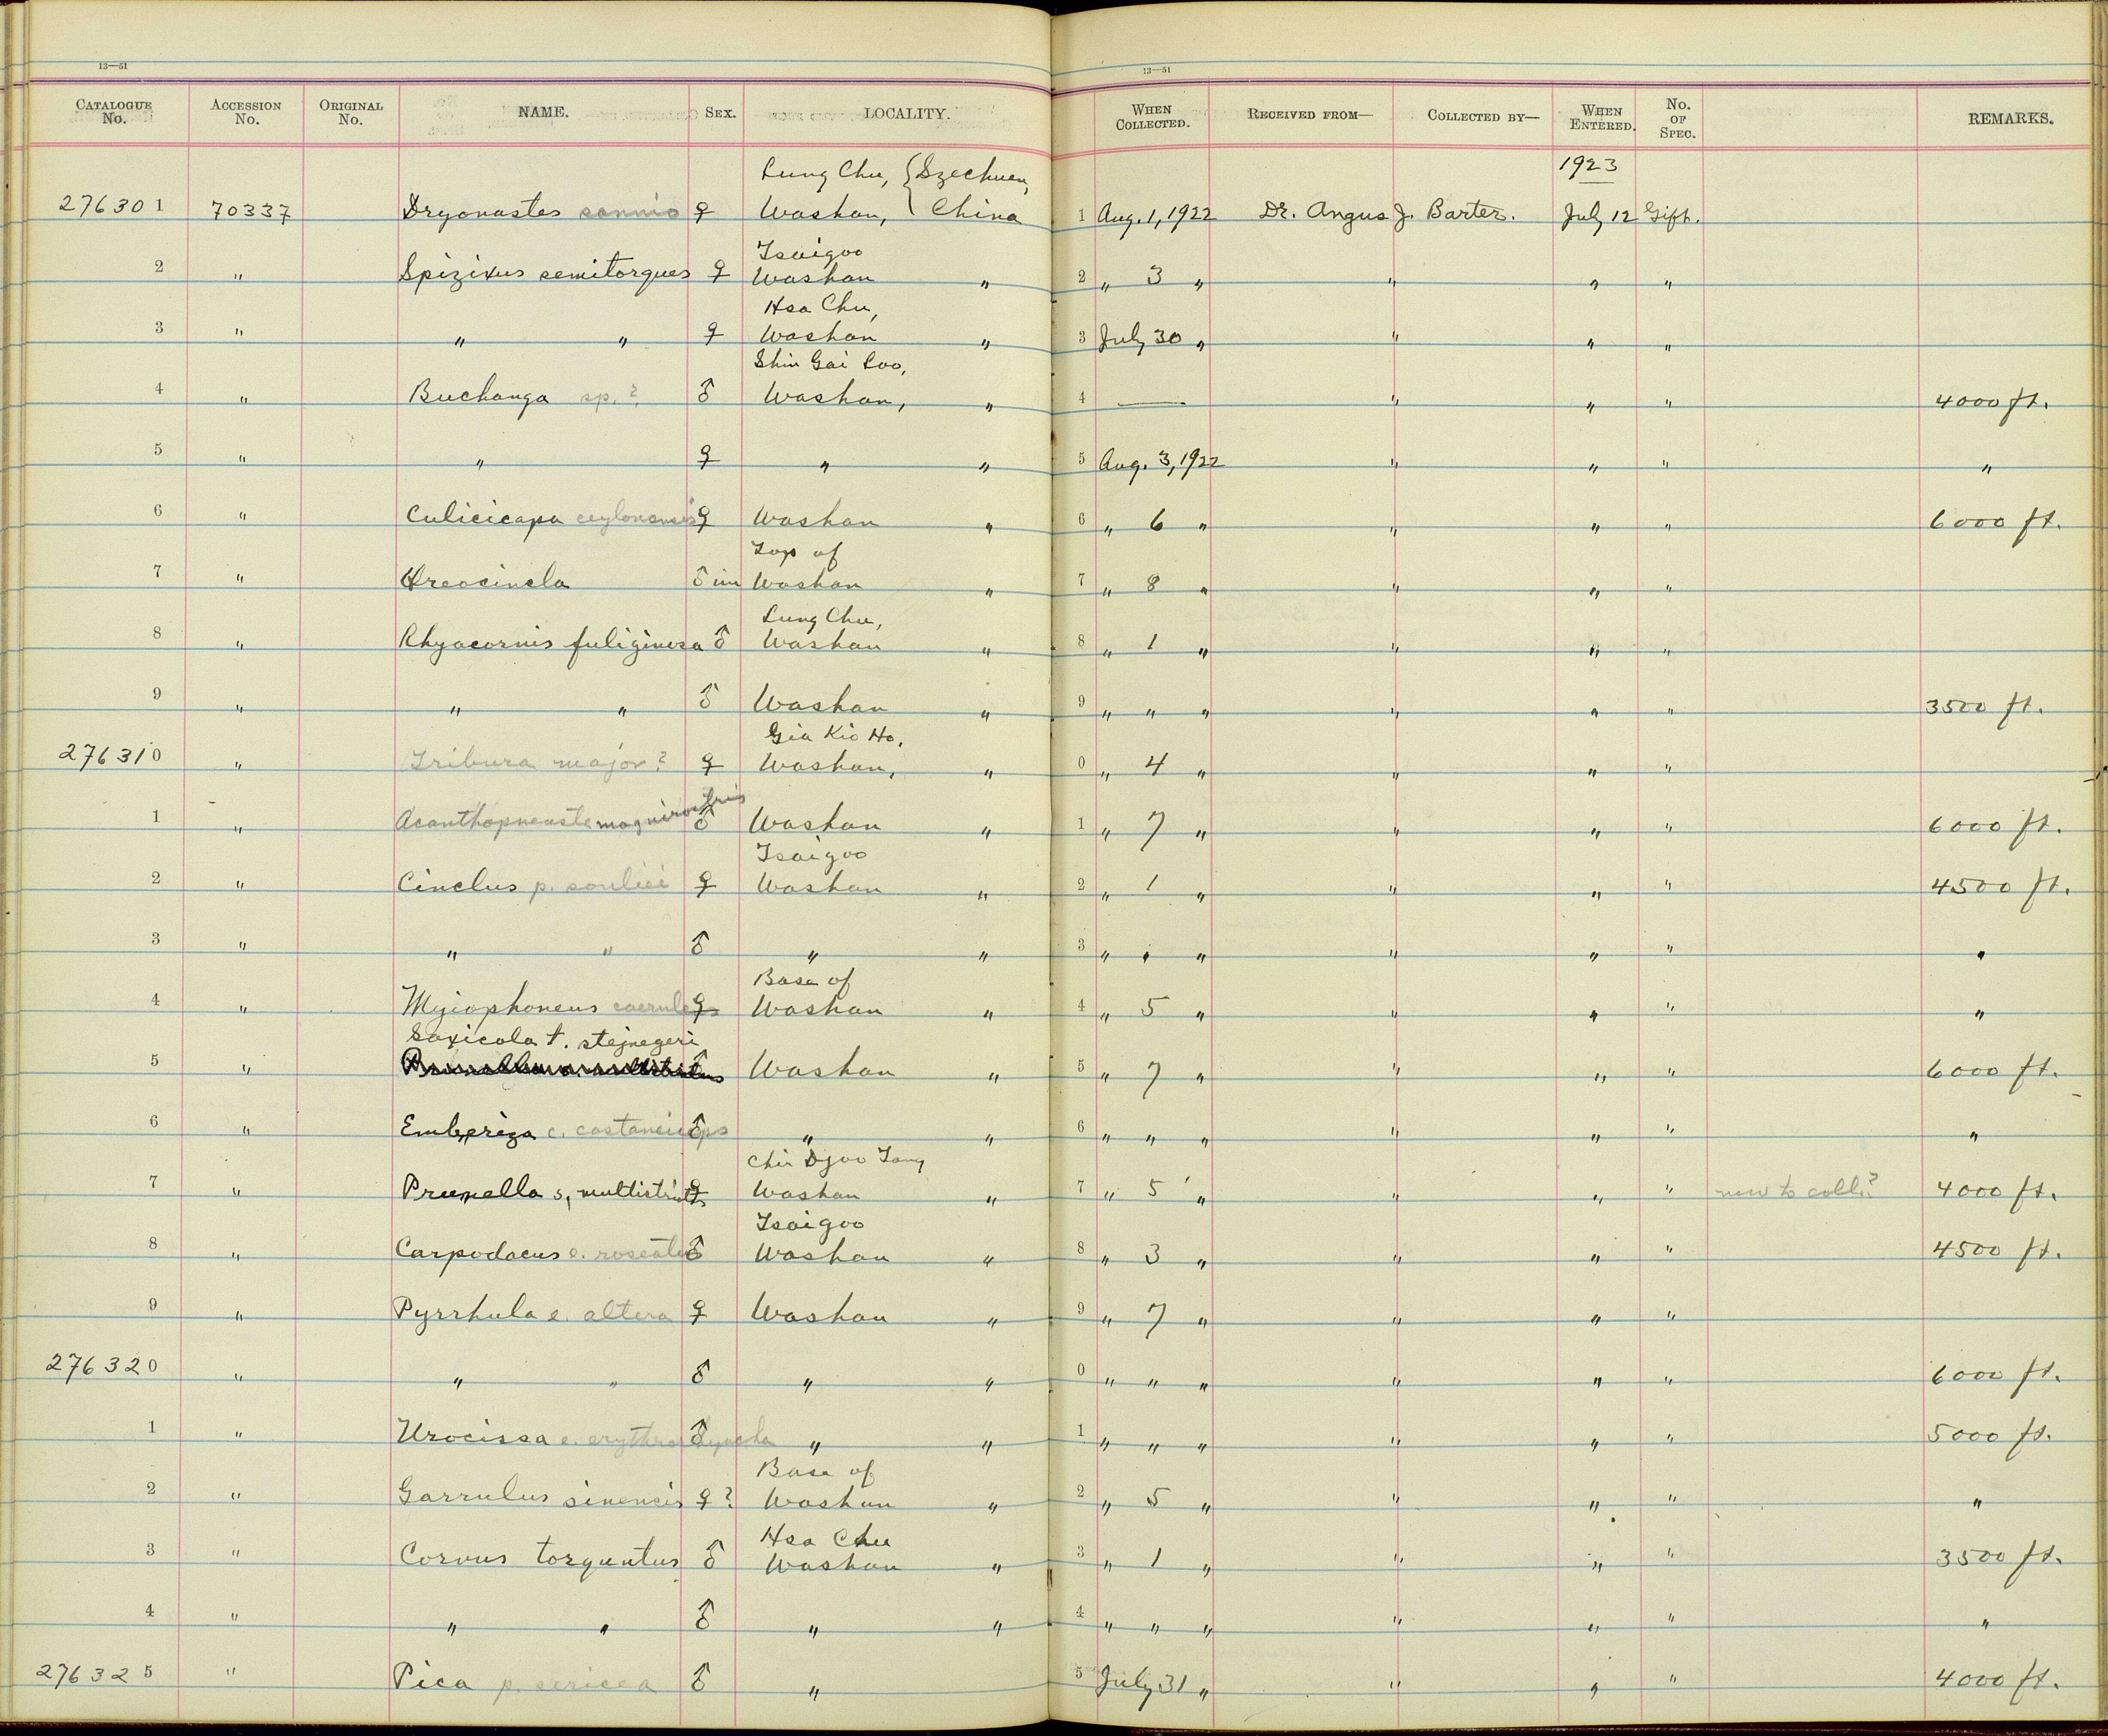 13—51
13—51
CATALOGUE No. ACCESSION No. ORIGINAL No. NAME. SEX. LOCALITY. WHEN COLLECTED. RECEIVED FROM— COLLECTED BY— WHEN ENTERED. No. OF SPEC. REMARKS.
Lung Chu, { Szechuen, 1923
276301 70337 Dryonastes sannio ♀ Washan, China 1 Aug. 1, 1922 Dr. Angus J. Barter. July 12 Gift.
Tsaigoo
2 " Spizixus semitorques ♀ Washan " 2 " 3 " " " "
Hsa Chu,
3 " " " ♀ Washan " 3 July 30 " " " "
Shin Gai
4 " Buchanga sp. ? ♂ Washan, " 4 — " " " 4000 ft.
5 " " ♀ " " 5 Aug. 3, 1922 " " " "
6 " Culicicapa ceylonensis ♀ Washan " 6 " 6 " " " " 6000 ft.
Top of
7 " Oreocincla ♂ im Washan " 7 " 8 " " " "
Lung Chu,
8 " Rhyacornis fuliginosa ♂ Washan " 8 " 1 " " " "
9 " " " ♂ Washan " 9 " " " " " " 3500 ft.
Gia Kio Ho,
276310 " Tribura major? ♀ Washan, " 0 " 4 " " " "
1 " Acanthopneuste magnirostris ♂ Washan " 1 " 7 " " " " 6000 ft.
Tsaigoo
2 " Cinclus p. souliei ♀ Washan " 2 " 1 " " " " 4500 ft.
3 " " " ♂ " " 3 " " " " " " "
Base of
4 " Myiophoneus caeruleus ♀ Washan " 4 " 5 " " " " "
Saxicola t. stejnegeri
5 " ♂ Washan " 5 " 7 " " " " 6000 ft.
6 " Emberiza c. castaneiceps ♂ " " 6 " " " " " " "
Chin Djoo Tang
7 " Prunella s. multistriata ♀ Washan " 7 " 5 " " " " new to coll.? 4000 ft.
Tsaigoo
8 " Carpodacus e. roseatus ♂ Washan " 8 " 3 " " " " 4500 ft.
9 " Pyrrhula e. altera ♀ Washan " 9 " 7 " " " "
276320 " " " ♂ " " 0 " " " " " " 6000 ft.
1 " Urocissa e. erythrorhyncha ♂ " " 1 " " " " " " 5000 ft.
Base of
2 " Garrulus sinensis ♀ ? Washan " 2 " 5 " " " " "
Hsa Chu
3 " Corvus torquatus ♂ Washan " 3 " 1 " " " " 3500 ft.
4 " " " ♂ " " 4 " " " " " " "
276325 " Pica p. sericea ♂ " 5 July 31 " " " " 4000 ft.